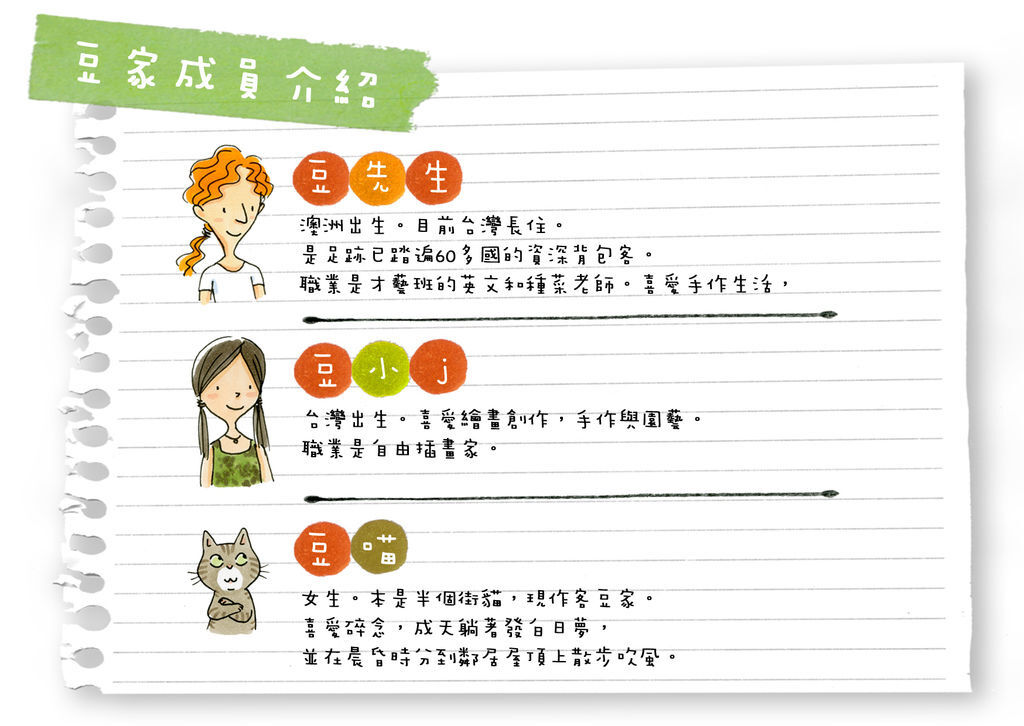 豆家成員介紹
豆先生
澳洲出生。目前台灣長住。
是足跡已踏遍60多國的資深背包客。
職業是才藝班的英文和種菜老師。喜愛手作生活，
豆小j
台灣出生。喜愛繪畫創作，手作與園藝。
職業是自由插畫家。
豆喵
女生。本是半個街貓，現作客豆家。
喜愛碎念，成天躺著發白日夢，
並在晨昏時分到鄰居屋頂上散步吹風。